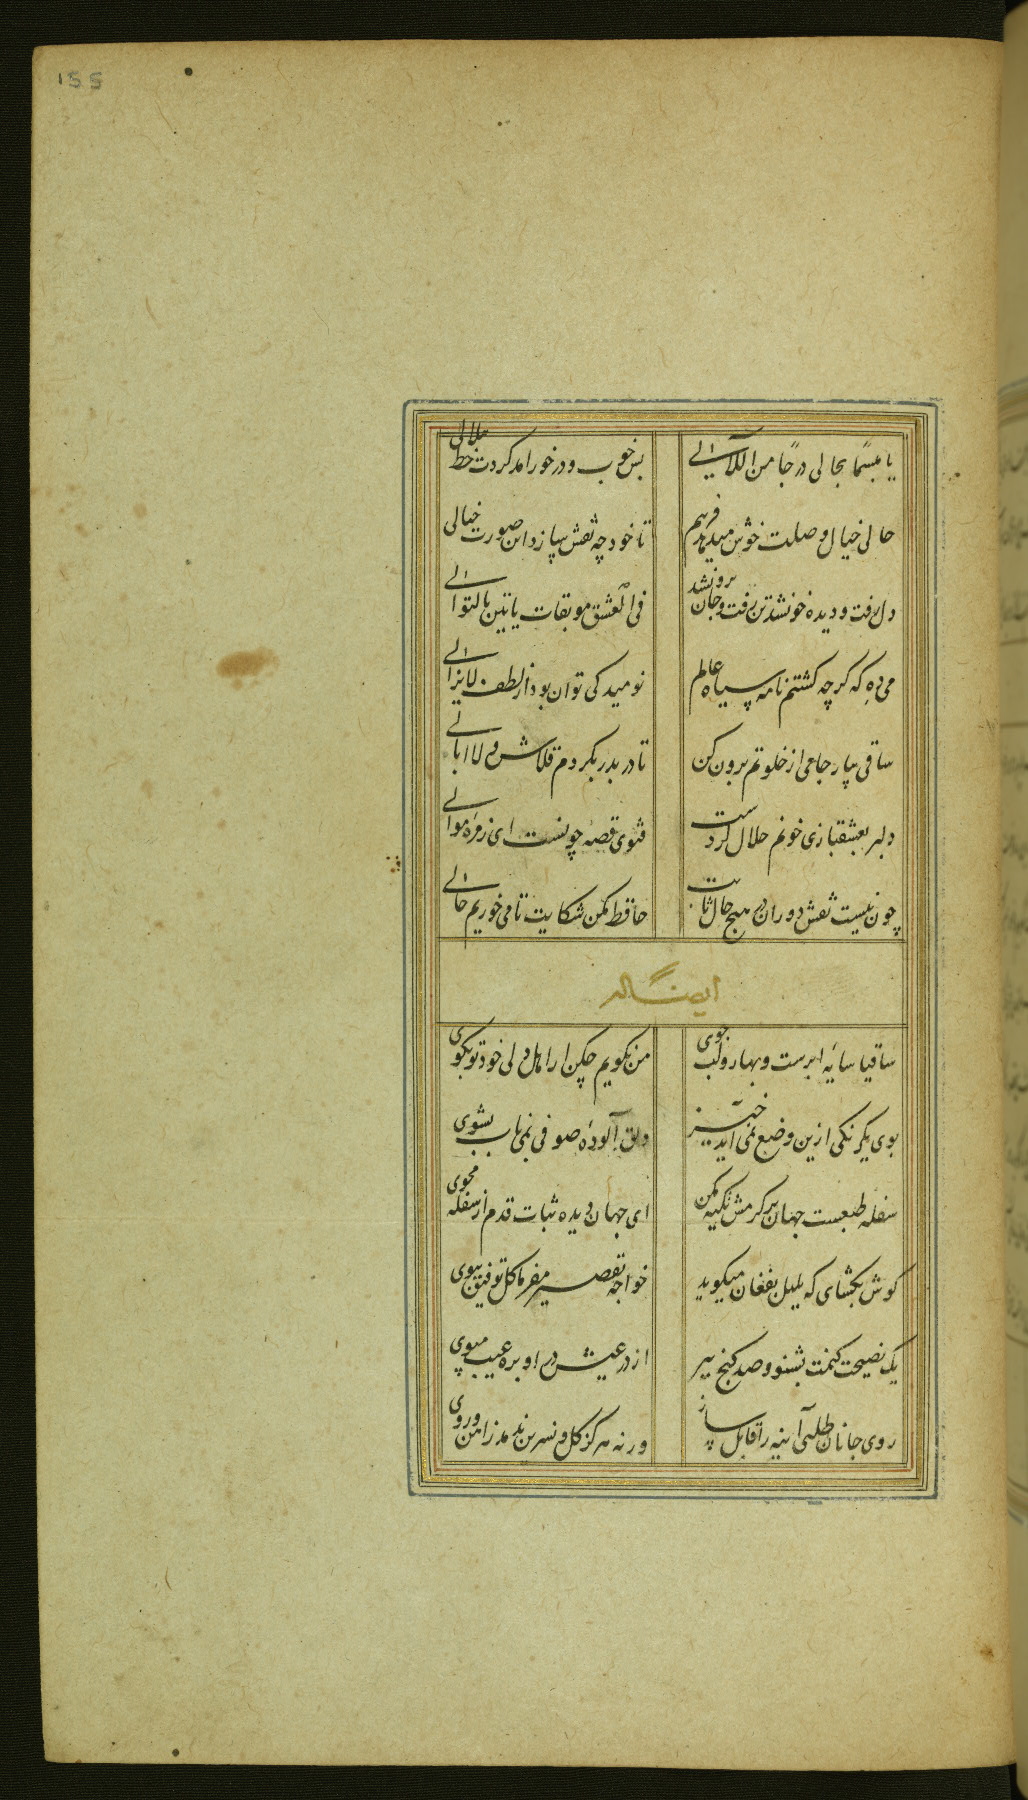 155
یا مبسماً بحالی درجاً من اللآلی
بس خوب و در خور امد گردت خط هلالی
حالی خیال وصلت خوش میدهد فریبم
تا خود چه نقش بازد این صورت خیالی
دل رفت و دیده خونشد تن رفت و جان برونشد
فی العشق موبقات یاتین بالتوالی
می ده که کرچه کشتم نامه سیاه عالم
نومید کی توان بود از لطف لایزالی
ساقی بیار جامی از خلوتم برون کن
تا در بدر بکردم قلاش و لاابالی
دلبر بعشقبازی خونم حلال کردست
فتوی قصه چونست ای زمرهٔ موالی
چون نیست نقش دوران در هیچ حال ثابت
حافظ مکن شکایت تا می خوریم حالی
ایضاً له
ساقیا سایهٔ ابرست و بهار و لب جوی
من نکویم چکن ار اهل دلی خود تو بکوی
بوی یکرنکی ازین وضع نمی آید خیز
دلق آلودهٔ صوفی بمی ناب بشوی
سفله طبعست جهان بر کرمش تکیه مکن
ای جهان دیده ثبات قدم از سفله مجوی
کوش بکشای که بلبل بفغان میکوید
خواجه تقصیر مفرما کل توفیق ببوی
یک نصیحت کنمت بشنو و صد کنج ببر
از در عیش در او بره عیب مپوی
روی جانان طلبی آینه را قابل ساز
ورنه هرکز کل و نسرین ندمد زاهن و روی